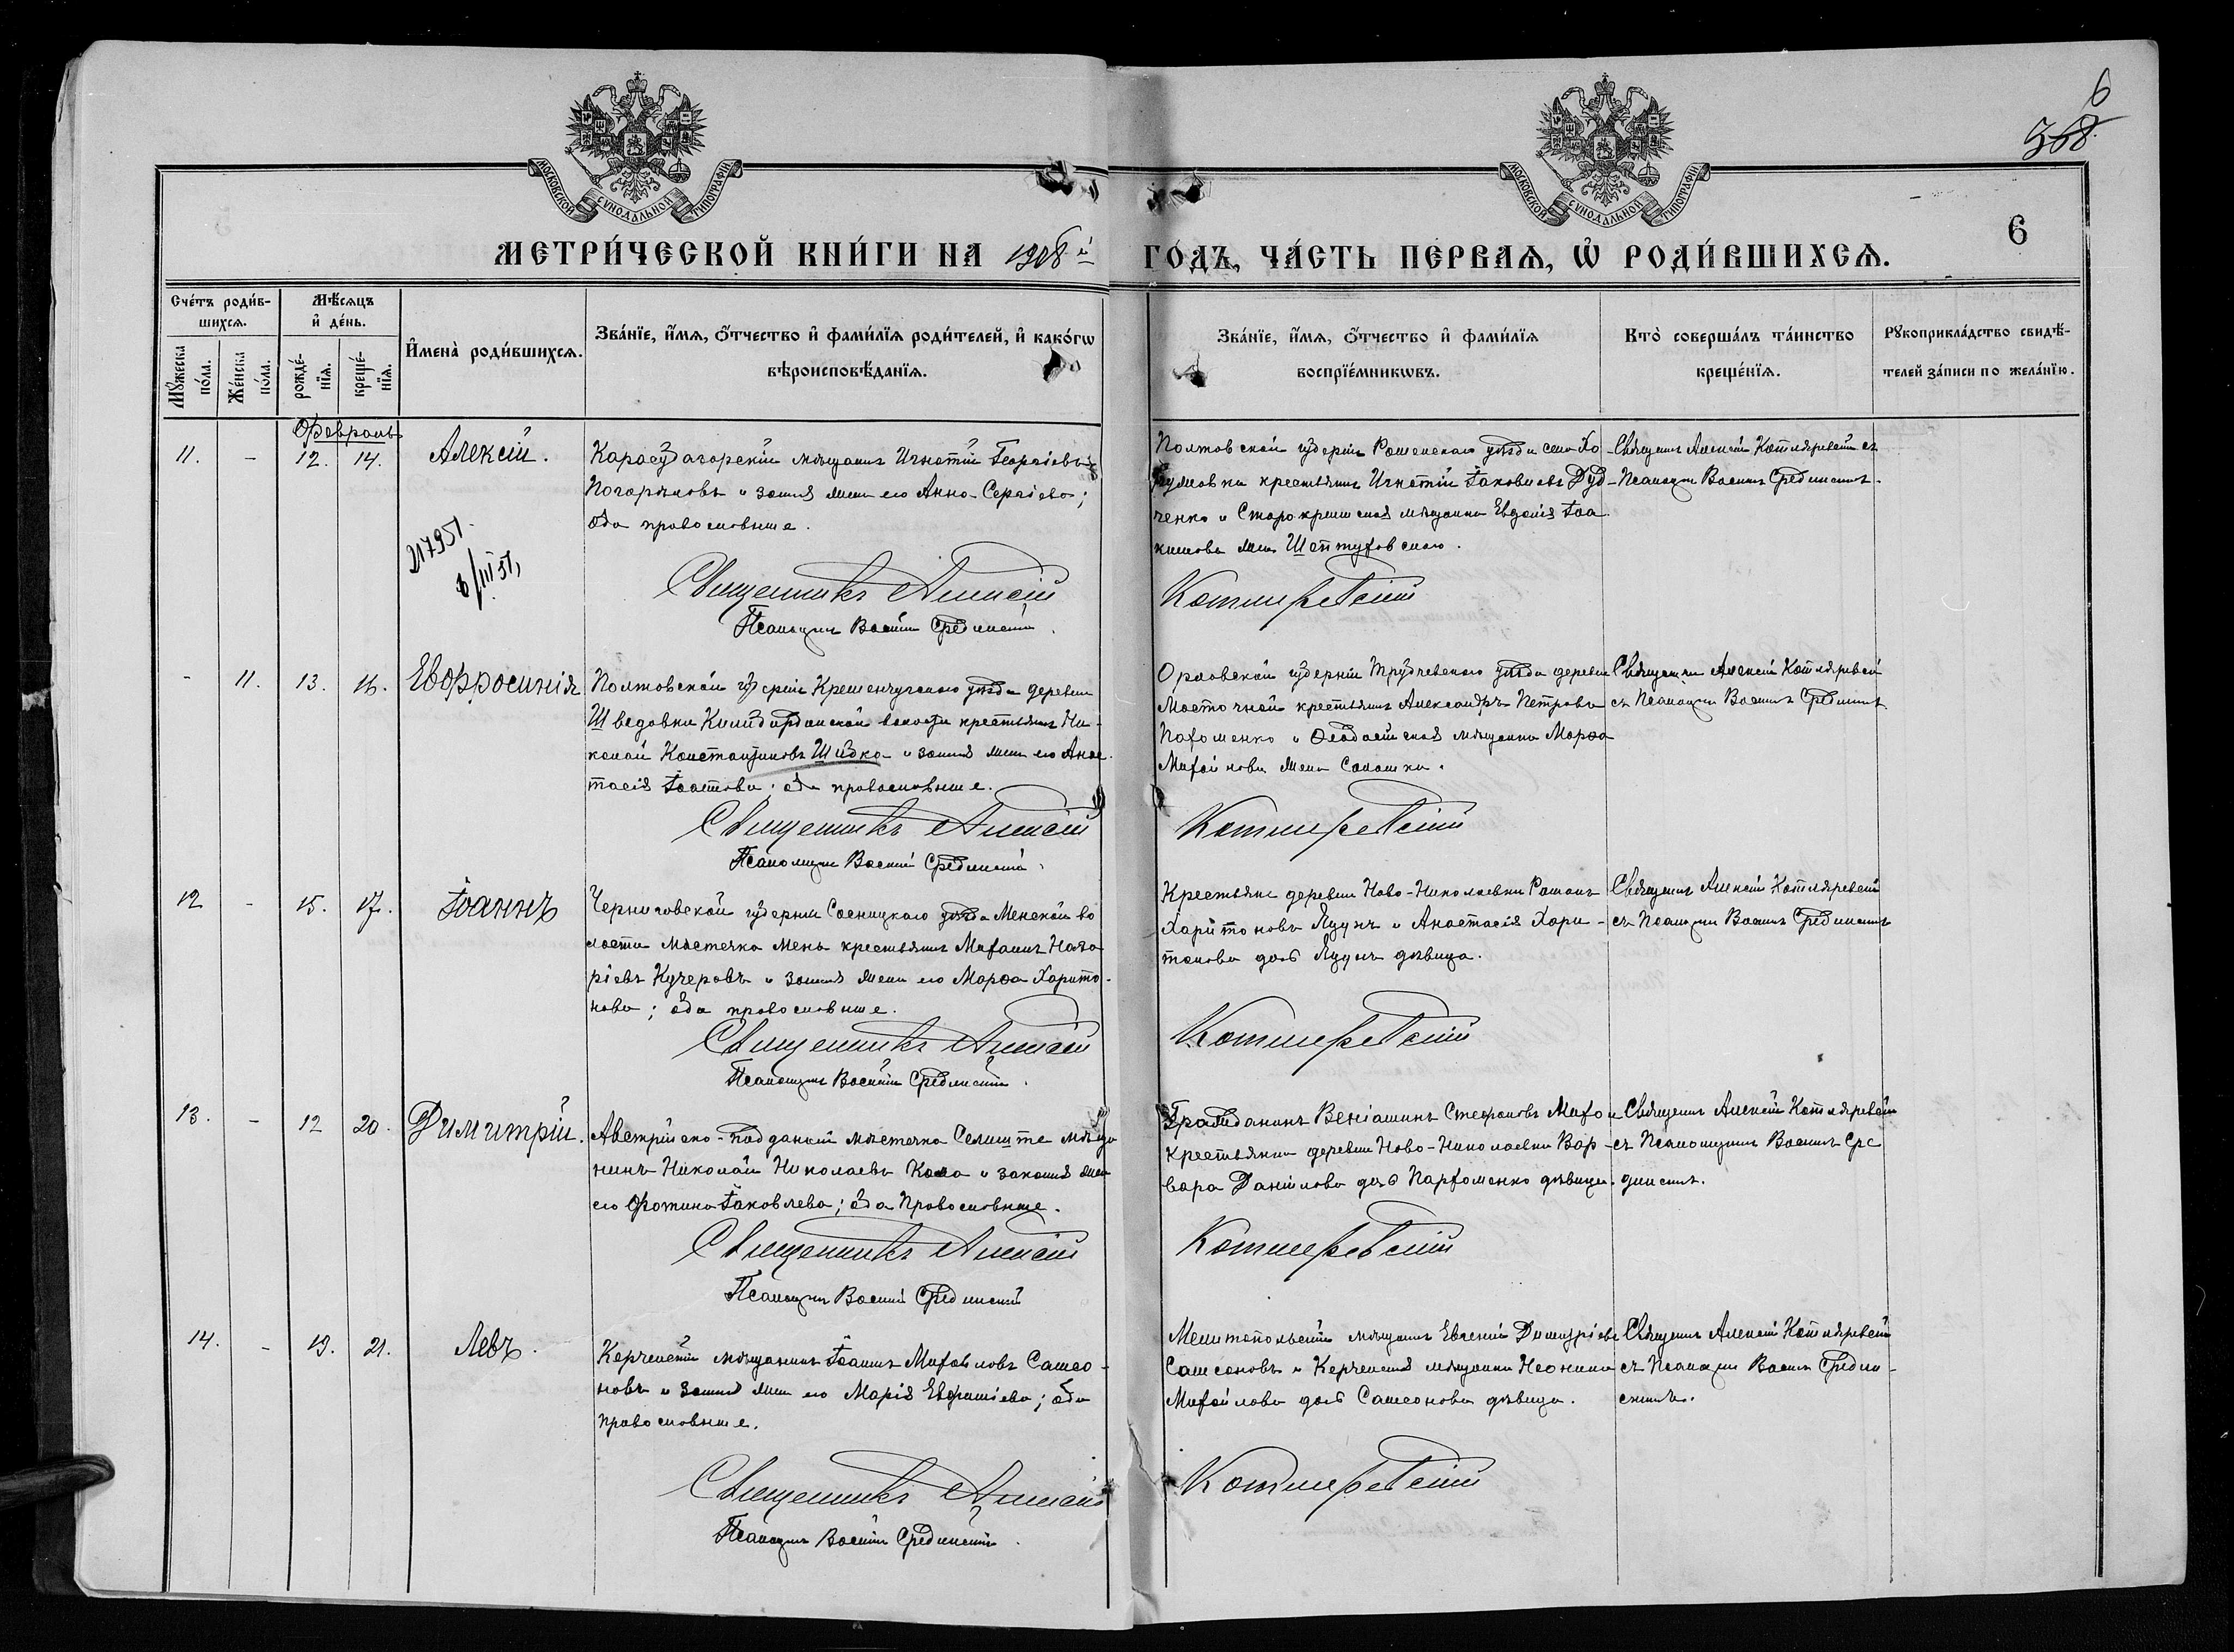 6
368.
МОСКОВСКОЙ СѴНОДАЛЬНОЙ ТИПОГРАФІИ
МОСКОВСКОЙ СѴНОДАЛЬНОЙ ТИПОГРАФІИ
6
МЕТРИ́ЧЕСКОЙ КНИ́ГИ НА 1908й ГО́ДЪ, ЧА́СТЬ ПЕ́РВАѦ, Ѡ҆ РОДИ́ВШИХСѦ.
Сче́тъ роди́в-
шихсѧ.
Мꙋ́жеска по́ла.
Же́нска по́ла.
Мѣ́сѧцъ
и҆ де́нь.
рожде́-
нїѧ.
креще́-
нїѧ.
И҆мена̀ роди́вшихсѧ.
Зва́нїе, и҆́мѧ, ѻ҆́тчество и҆ фами́лїѧ роди́телей, и҆ како́гѡ
вѣроисповѣ́данїѧ.
Зва́нїе, и҆́мѧ, ѻ҆́тчество и҆ фами́лїѧ
воспрїе́мникѡвъ.
Кто̀ соверша́лъ та́инство
креще́нїѧ.
Рꙋкоприкла́дство свидѣ́-
телей за́писи по жела́нїю.
Февраль
11. - 12. 14. Алексій.
Карасубазорскій мѣщанинъ Игнатій Георгіевъ
Погорѣловъ и законная жена его Анна Сергіева;
оба православные.
21795
6/III 51,
Священникъ Алексій Котляревскій
Псаломщикъ Василій Срединскій.
Полтовской губерніи Роменскаго уѣзда села
крестьянинъ Игнатій Іаковлевъ Дуд-
ченко и Старокрымская мѣщанка Евдокія Іоа
кимова жена Шептуховскаго.
Священникъ Алексій Котляревскій съ
Псаломщикомъ Василіемъ Срединскимъ.
- 11. 13. 16. Евфросинія
Полтовской губерніи Кременчугскаго уѣзда деревни
Шведовки волости крестьянинъ Ни-
колай Константиновъ Шидко и законная жена его Анас-
тасія; оба православные.
Священникъ Алексій Котляревскій
Псаломщикъ Василій Срединскій.
Орловской губерніи Трубчевскаго уѣзда деревни
Мосточной крестьянинъ Александръ Петровъ
Пахоменко и Ѳеодосійская мѣщанка Марѳа
Михайлова жена
Священникъ Алексій Котляревскій
съ Псаломщикомъ Василіемъ Срединскимъ
12 - 15. 17. Іоаннъ
Черниговской губерніи Сосницкаго уѣзда Менской во
лости мѣстечка Мены крестьянинъ Михаилъ Наза
ріевъ Кучеровъ и законная жена его Марѳа Харито-
нова; оба православные.
Священникъ Алексій Котляревскій
Псаломщикъ Василій Срединскій.
Крестьяне деревни Ново-Николаевки Романъ
Харитоновъ Яцунъ и Анастасія Хари-
тонова дочь Яцунъ дѣвица.
Священникъ Алексій Котляревскій
съ Псаломщикомъ Василіемъ Срединскимъ
13. - 12 20. Димитрій.
Австрійско-подданный мѣстечка Селиште мѣща
нинъ Николай Николаевъ и законная жена
его Фотина Іаковлева; оба Православные.
Священникъ Алексій Котляревскій
Псаломщикъ Василій Срединскій
Гражданинъ Веніаминъ Стефановъ и
крестьянка деревни Ново-Николаевки Вар-
вара Даніилова дочь Пархоменко дѣвица.
Священникъ Алексій Котляревскій
съ Псаломщикомъ Василіемъ Сре
динскимъ.
14. - 19. 21. Левъ.
Керченскій мѣщанинъ Іоаннъ Михайловъ Самсо-
новъ и законная жена его Марія Евфиміева; оба
православные.
Священникъ Алексій Котляревскій
Псаломщикъ Василій Срединскій.
Мелитопольскій мѣщанинъ Евгеній Димитріевъ
Самсоновъ и Керченская мѣщанка Неонила
Михайлова дочь Самсонова дѣвица.
Священникъ Алексій Котляревскій
съ Псаломщикомъ Василіемъ Средин-
скимъ.